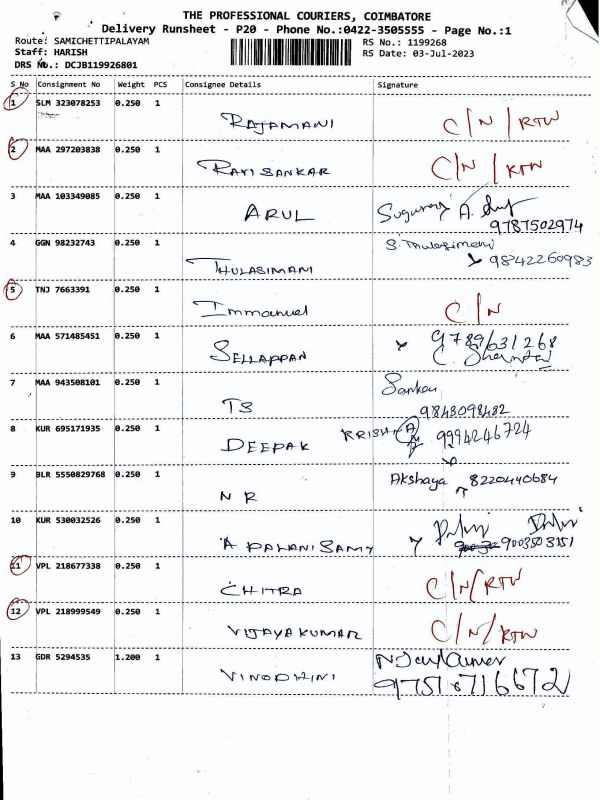 THE PROFESSIONAL COURIERS, COIMBATORE
Delivery Runsheet - P20 - Phone No.:0422-3505555 - Page No.:1
Route: SAMICHETTIPALAYAM RS No.: 1199268
Staff: HARISH RS Date: 03-Jul-2023
DRS No.: DCJB119926801
S No Consignment No Weight PCS Consignee Details Signature
1 SLM 323078253 0.250 1
RAJAMANI C/N/RTW
2 MAA 297203838 0.250 1
RAVISANKAR C/N/RTW
3 MAA 103349085 0.250 1
ARUL A.
9787502974
4 GGN 98232743 0.250 1 S. Thulasimani
THULASIMANI 9842260983
5 TNJ 7663391 0.250 1
Immanuel C/N
6 MAA 571485451 0.250 1 9789631268
SELLAPPAN C.
7 MAA 943508101 0.250 1 Sankar
TS 9843098482
8 KUR 695171935 0.250 1 KRISHNA 9994246724
DEEPAK
9 BLR 5550829768 0.250 1 Akshaya 8220440684
NR
10 KUR 530032526 0.250 1
A PALANISAMY 9003508151
11 VPL 218677338 0.250 1
CHITRA C/N/RTW
12 VPL 218999549 0.250 1
VIJAYAKUMAR C/N/RTW
13 GDR 5294535 1.200 1
VINODHINI 9751716672